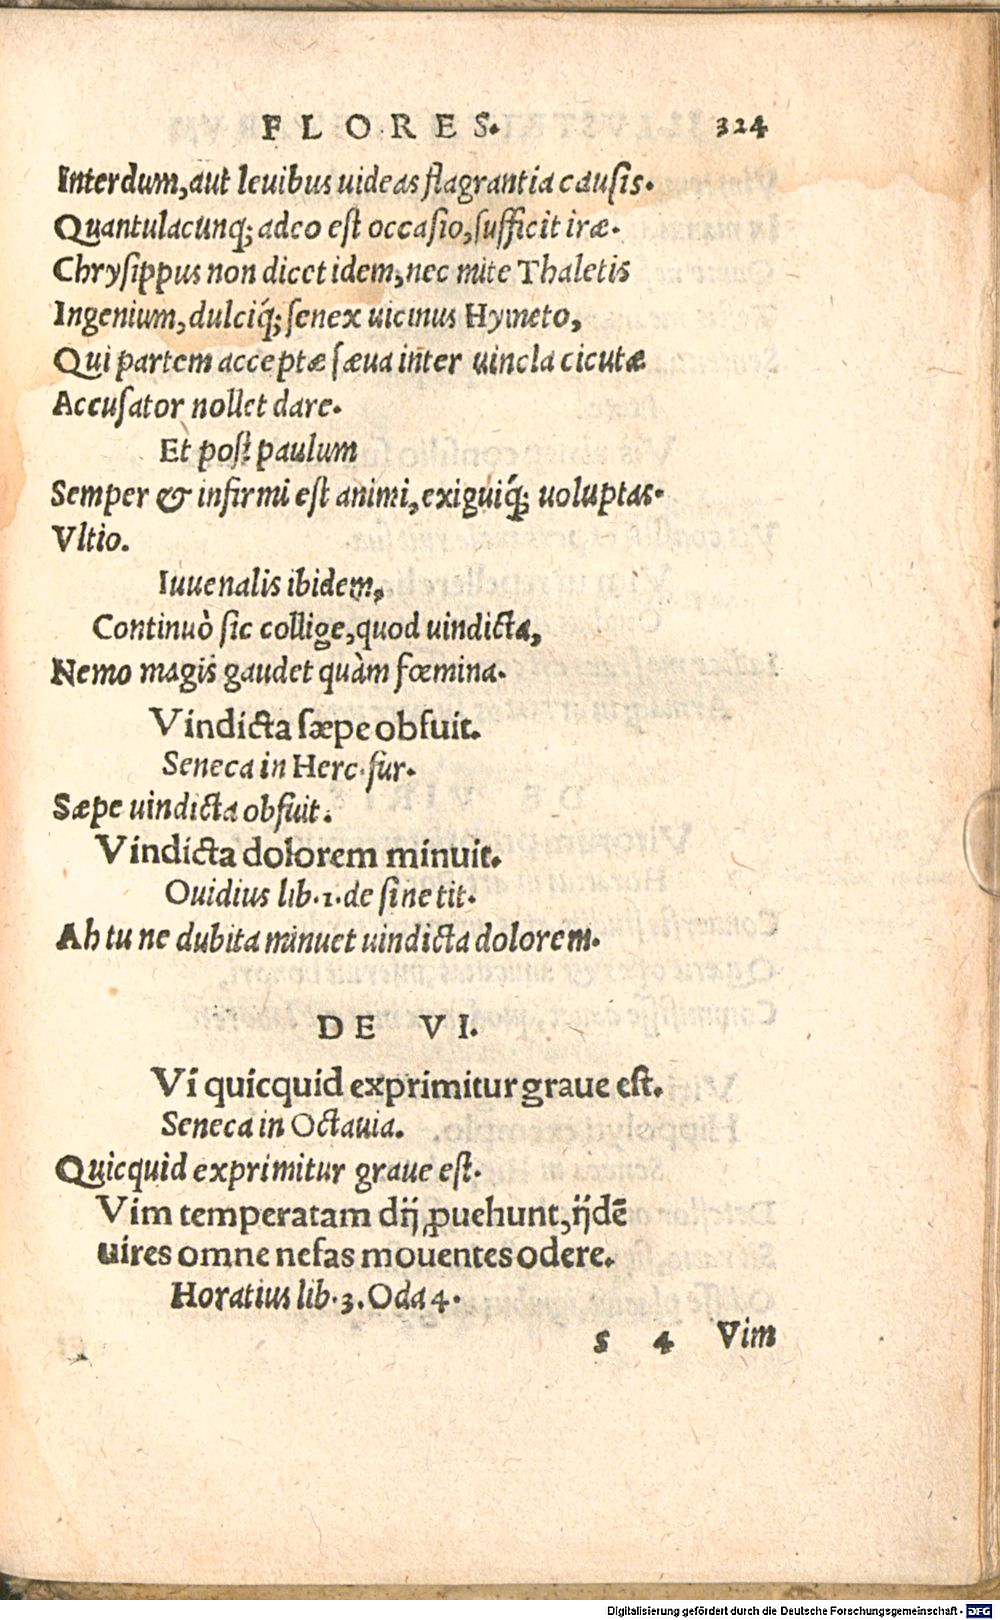 FLORES. 324
Interdum, aut leuibus uideas flagrantia causis.
Quantulacunq; adeo est occasio, sufficit iræ.
Chrysippus non dicet idem, nec mite Thaletis
Ingenium, dulciq́; senex uicinus Hymeto,
Qui partem acceptæ sæua inter uincla cicutæ
Accusator nollet dare.
Et post paulum
Semper & infirmi est animi, exiguiq́; uoluptas.
Vltio.
Iuuenalis ibidem,
Continuò sic collige, quod uindicta,
Nemo magis gaudet quàm fœmina.
Vindicta sæpe obfuit.
Seneca in Herc. fur.
Sæpe uindicta obfuit.
Vindicta dolorem minuit.
Ouidius lib. 1. de sine tit.
Ah tu ne dubita minuet uindicta dolorem.
DE VI.
Vi quicquid exprimitur graue est.
Seneca in Octauia.
Quicquid exprimitur graue est.
Vim temperatam dij ꝓuehunt, ijdē
uires omne nefas mouentes odere.
Horatius lib. 3. Oda 4.
s 4 Vim
Digitalisierung gefördert durch die Deutsche Forschungsgemeinschaft - DFG